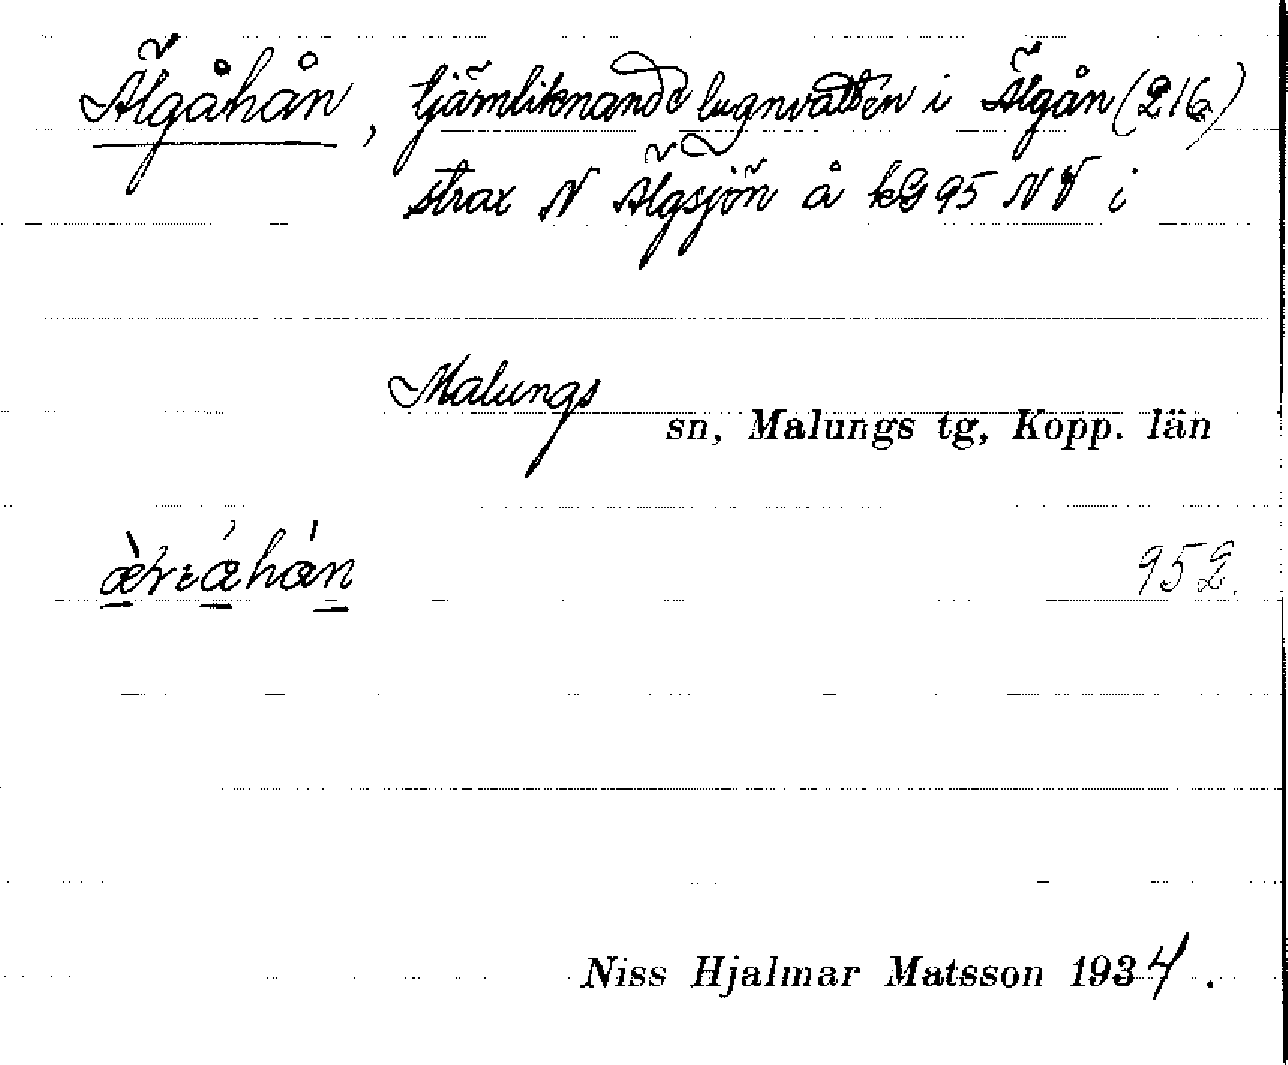 Älgåhån, tjärnliknande lugnvatten i Älgån (216)
strax N Älgsjön å kG 95 NV i
Malungs
sn, Malungs tg, Kopp. län
952.
Niss Hjalmar Matsson 1934.